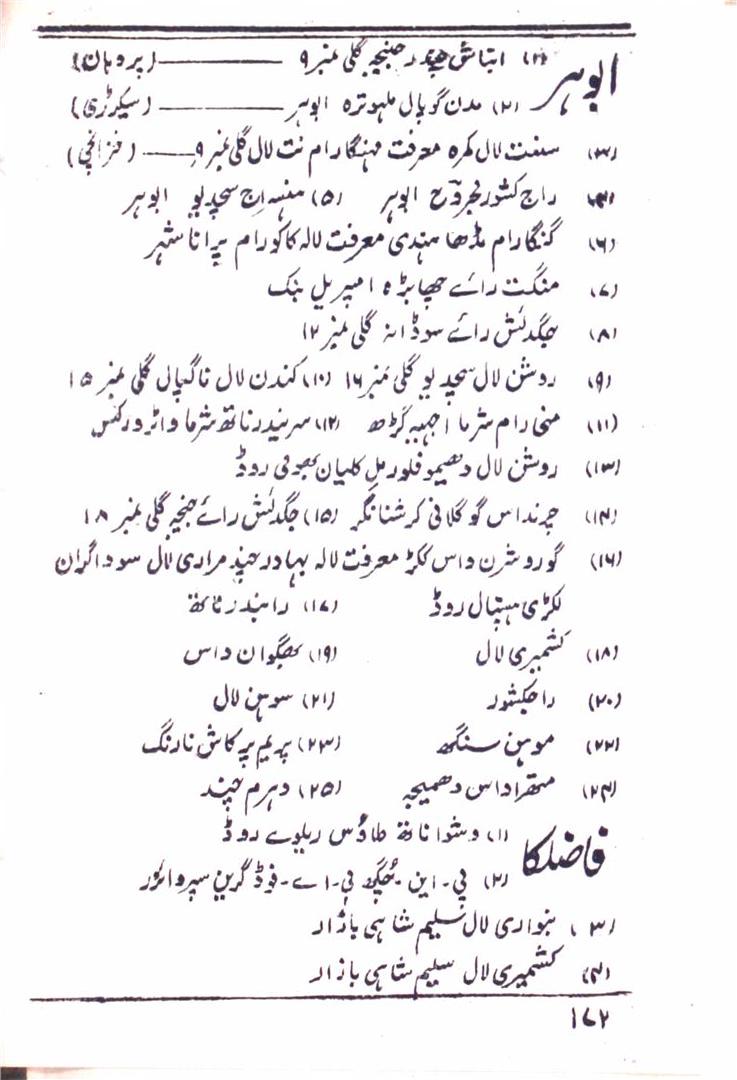 ابوہر (۱) ابناش چندر جنجہ گلی نمبر ۹ ——— (پردھان)
(۲) مدن گوپال ملہوترہ ابوہر ——— (سیکرٹری)
(۳) سنت لال کمرہ معرفت مہنگا رام نت لال گلی نمبر ۹ —— (خزانچی)
(۴) راج کشور لجروح ابوہر (۵) ہنسراج سچدیو ابوہر
(۶) گنگا رام مڈھا ہندی معرفت لالہ کاکو رام پرانا شہر
(۷) منگت رائے چھابڑہ امپریل بنک
(۸) جگدئش رائے سوڈانہ گلی نمبر ۱۲
(۹) روشن لال سچدیو گلی نمبر ۱۶ (۱۰) کندن لال ناگپال گلی نمبر ۱۵
(۱۱) منی رام شرما اجہبہ گڑھ (۱۲) سرنیدر ناتھ شرما واٹر ورکس
(۱۳) روشن لال دھیمو فلور مل کلیان بھومی روڈ
(۱۴) چرنداس گوگلانی کرشنا نگر (۱۵) جگدئش رائے جنجہ گلی نمبر ۱۸
(۱۶) گورو شرن داس ککڑ معرفت لالہ بہادر چند مراری لال سوداگران
لکڑی ہسپتال روڈ (۱۷) راجندر ناتھ
(۱۸) کشمیری لال (۱۹) بھگوان داس
(۲۰) راجکشور (۲۱) سوہن لال
(۲۲) موہن سنگھ (۲۳) پریم پرکاش نارنگ
(۲۴) متھرا داس دھمیجہ (۲۵) دہرم چند
فاضلکا (۱) وشوا ناتھ طاؤس ریلوے روڈ
(۲) پی۔ این۔ چُگھ پی۔ اے۔ فوڈ گرین سپروائزر
(۳) بنواری لال سلیم شاہی بازار
(۴) کشمیری لال سلیم شاہی بازار
۱۷۲